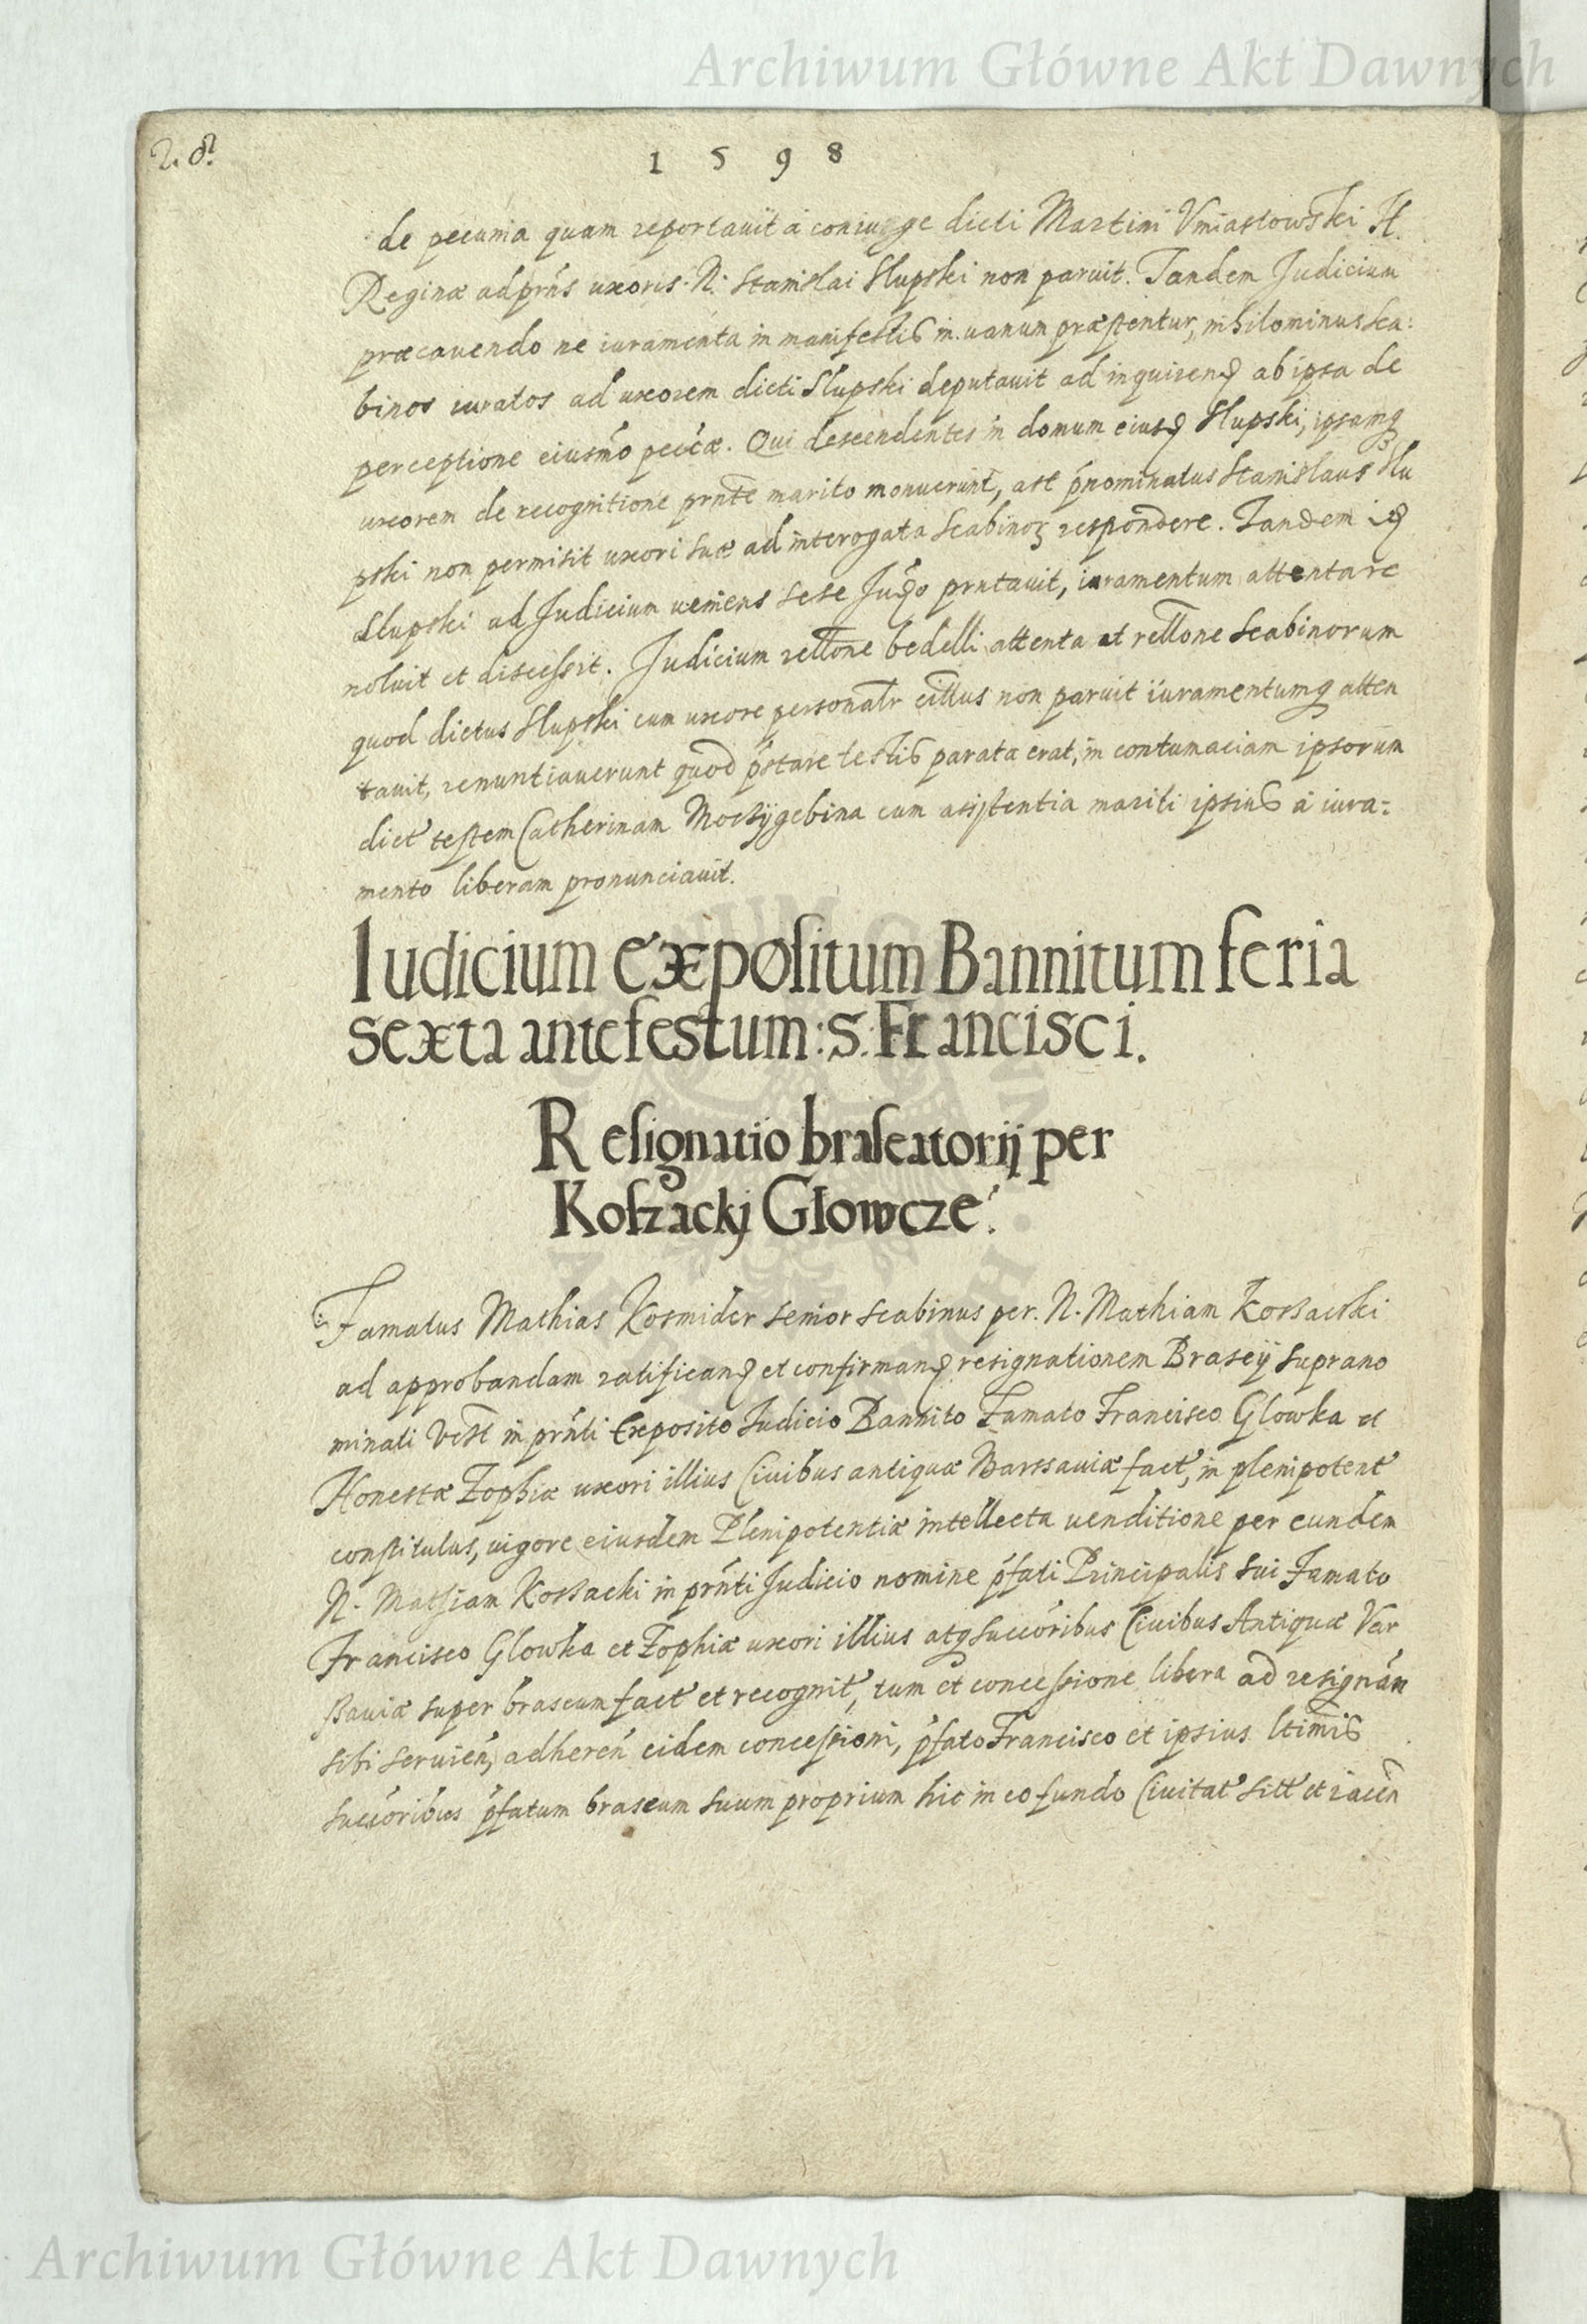 Archiwum Główne Akt Dawnych
1 5 9 8
de pecunia quam reportauit a coniuge dicti Martini Vmiastowski H.
Reginæ ad prñs uxoris N. Stanislai Slupski non paruit. Tandem Judicium
præcauendo ne iuramenta in manifestis in uanum præstentur, nihilominus sca:
binos iuratos ad uxorem dicti Slupski deputauit ad inquirend ab ipsa de
perceptione eiusmo pecūæ. Qui descendentes in domum eiusd Slupski, ipsamq
uxorem de recognitione prnte marito monuerunt, ast pnominatus Stanislaus Slu
pski non permisit uxori suæ ad interogata Scabinoꝝ respondere. Tandem id
Slupski ad Judicium ueniens sese Judo prntauit, iuramentum attentare
noluit et discessit. Judicium rellone bedelli attenta et rellone Scabinorum
quod dictus Slupski cum uxore personalr citlus non paruit iuramentumq atten
tauit, renuntiauerunt quod pstare testis parata erat, in contumaciam ipsorum
dict testem Catherinam Mockygebina cum asistentia mariti ipsius a iura=
mento liberam pronunciauit.
Iudicium Expositum Bannitum feria
sexta ante festum: S: Francisci.
Resignatio braseatorij per
Koszackj Glowcze.
Famatus Mathias Kosmider senior scabinus per. N. Mathiam Kossacski
ad approbandam ratificand et confirmand resignationem Braseÿ suprano
minati in prñti Exposito Judicio Bannito Famato Francisco Glowka et
Honestæ Zophiæ uxori illius Ciuibus antiquæ Warssauiæ fact, in plenipotent
constitutus, uigore eiusdem Plenipotentiæ intellecta uenditione per eundem
N. Mathiam Kossacki in prñti Judicio nomine pfati Principalis sui Famato
Francisco Glowka et Zophiæ uxori illius atq succoribus Ciuibus Antiquæ Var
ssauiæ super braseum fact et recognit, tum et concessione libera ad resignan
sibi seruien, adheren eidem concessioni, pfato Francisco et ipsius ltimis
succoribus pfatum braseum suum proprium hic in eo fundo Ciuitat sitt et iacen
Archiwum Główne Akt Dawnych